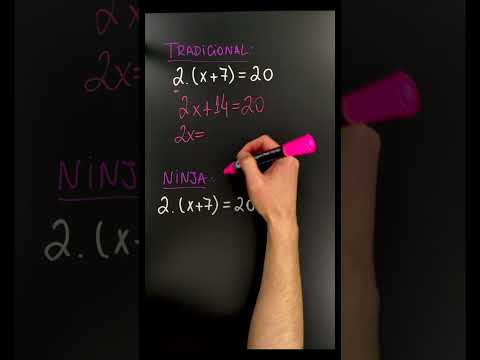 TRADICIONAL:
2.(x+7)=20
2x+14=20
2x=
NINJA:
2.(x+7)=20